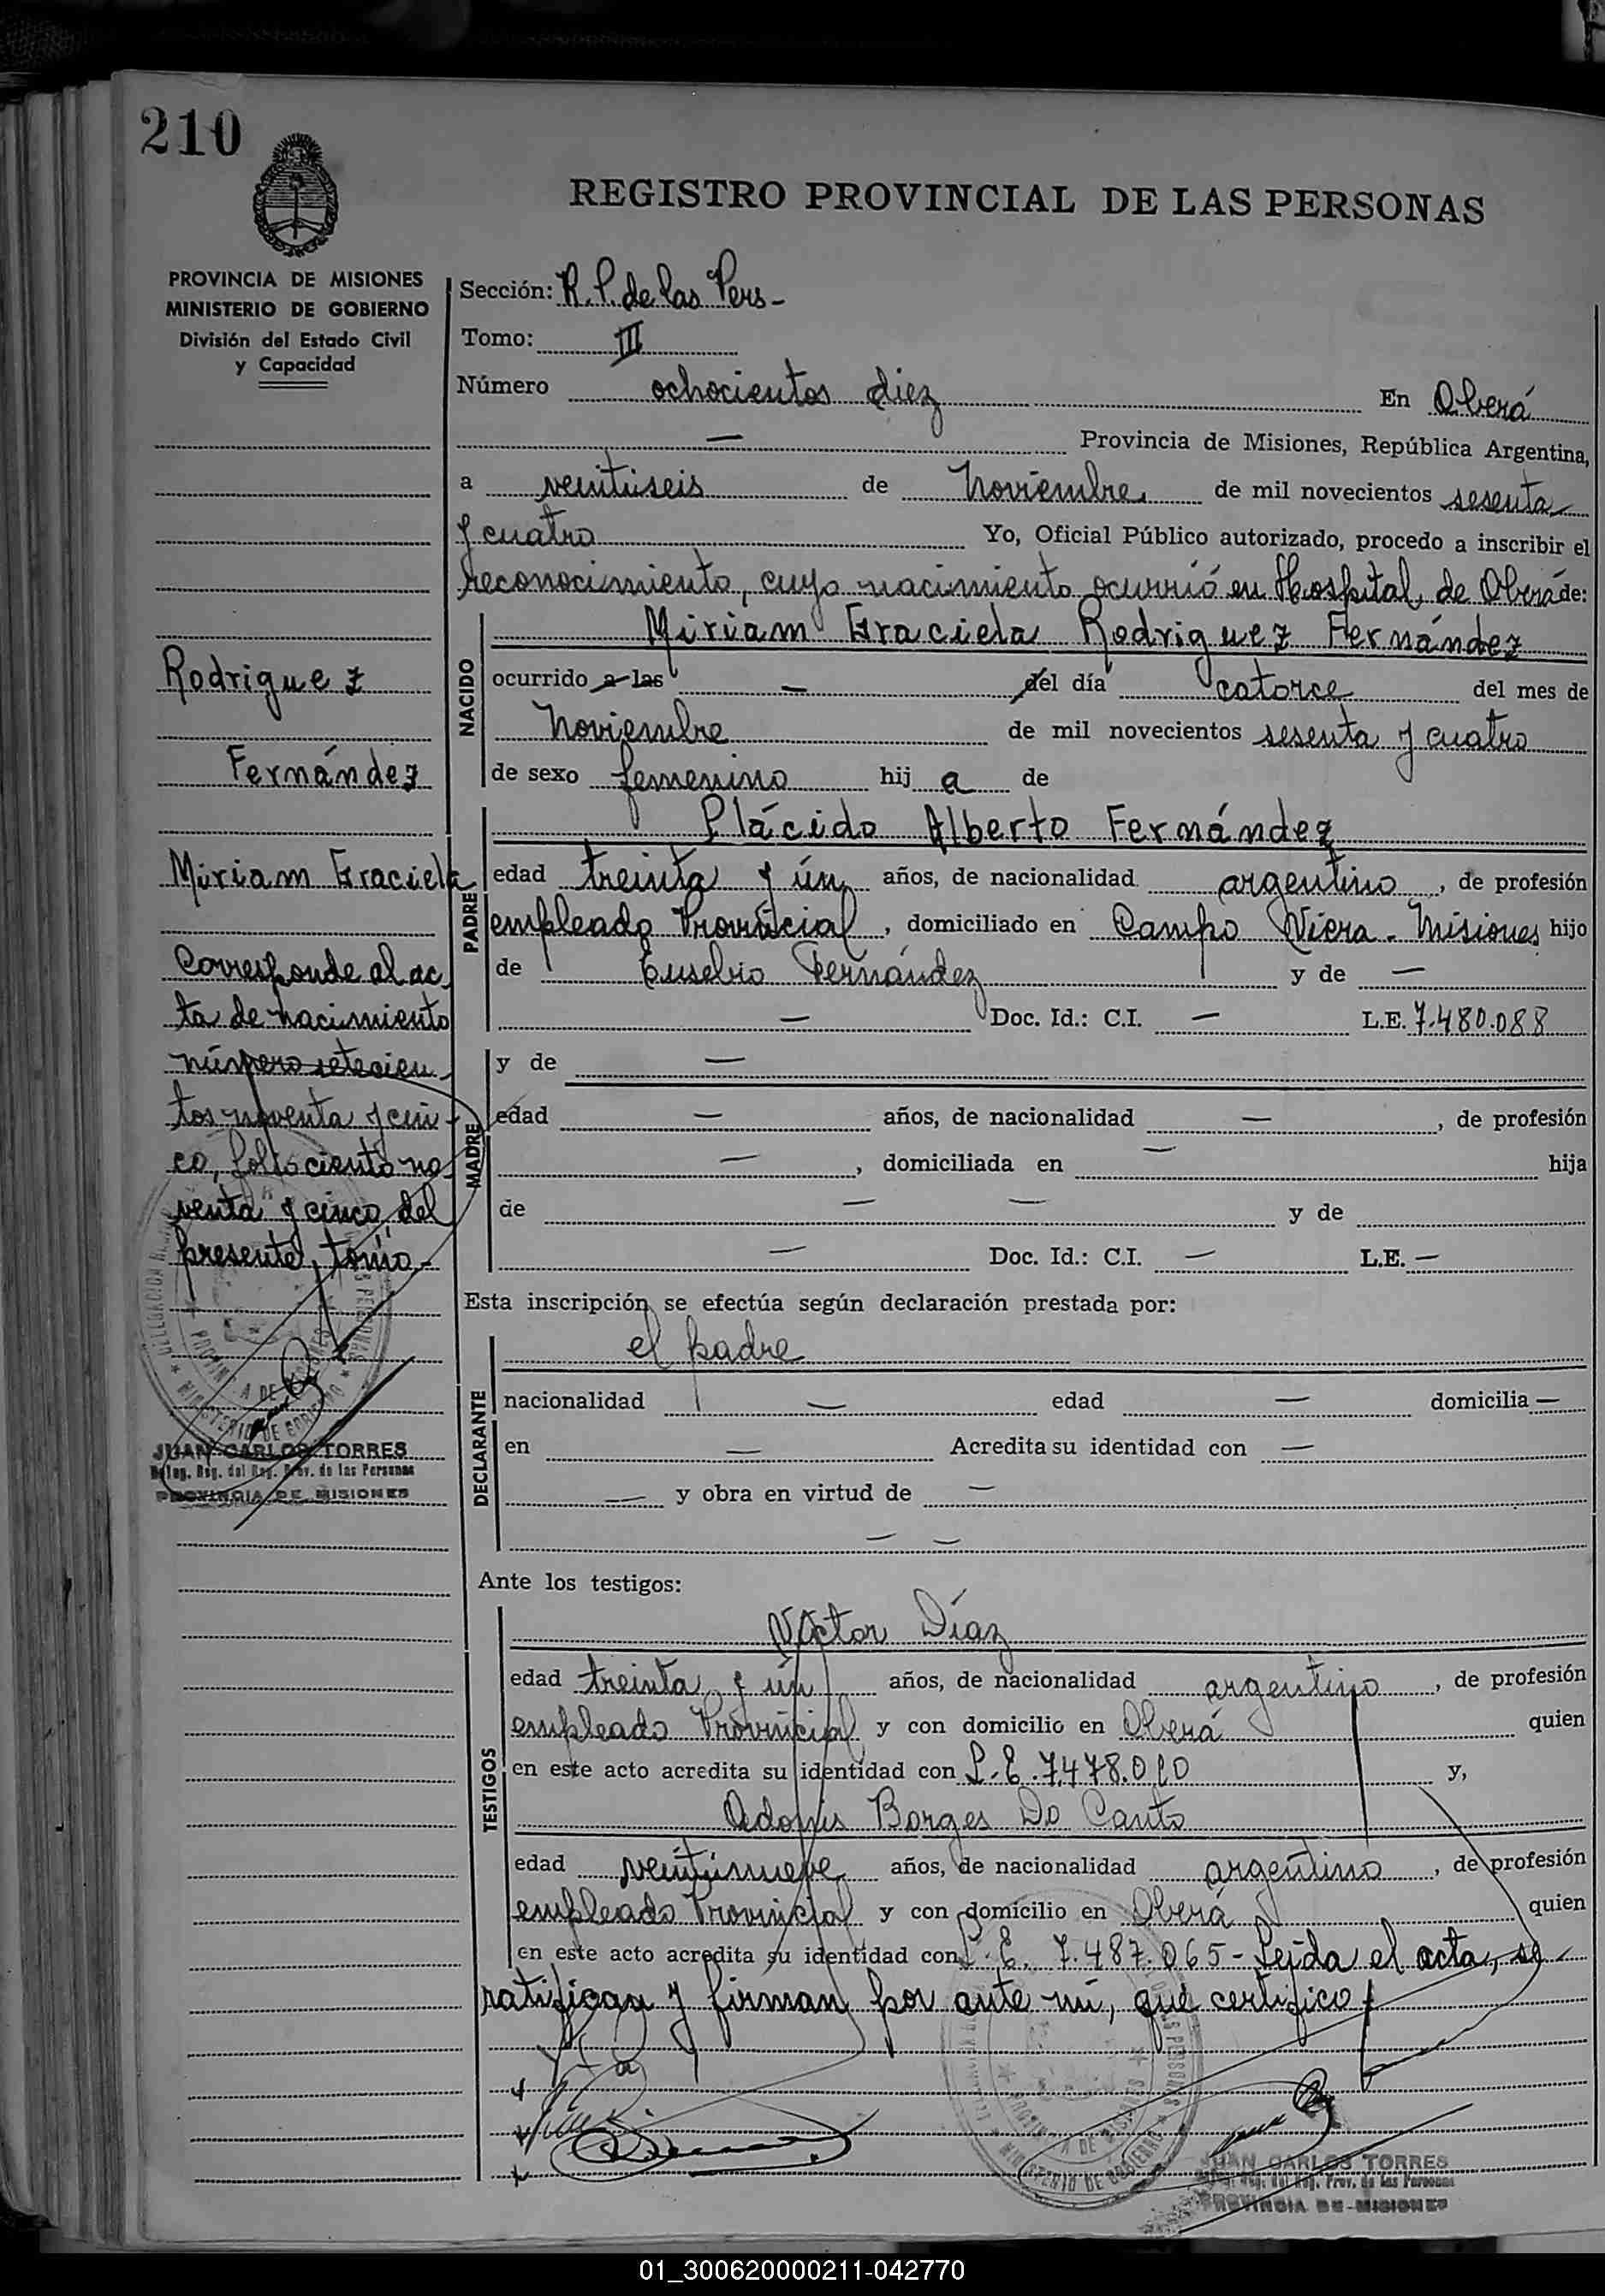 210
REGISTRO PROVINCIAL DE LAS PERSONAS
PROVINCIA DE MISIONES
MINISTERIO DE GOBIERNO
División del Estado Civil
y Capacidad
Rodriguez
Fernández
Miriam Graciela
Corresponde al ac
ta de nacimiento
número setecien
tos noventa y cin-
co, folio ciento no
venta y cinco, del
presente, tomo.-
JUAN CARLOS TORRES
Deleg. Reg. del Reg. Prov. de las Personas
PROVINCIA DE MISIONES
Sección: R. P. de las Pers-
Tomo: III
Número ochocientos diez En Oberá
— Provincia de Misiones, República Argentina,
a veintiseis de Noviembre de mil novecientos sesenta
y cuatro Yo, Oficial Público autorizado, procedo a inscribir el
reconocimiento, cuyo nacimiento ocurrió en Hospital de Oberá de:
NACIDO
Miriam Graciela Rodriguez Fernández
ocurrido a las — del día catorce del mes de
Noviembre de mil novecientos sesenta y cuatro
de sexo femenino hij a de
PADRE
Plácido Alberto Fernández
edad treinta y ún años, de nacionalidad argentino, de profesión
empleado Provincial, domiciliado en Campo Viera - Misiones hijo
de Eusebio Fernández y de —
— Doc. Id.: C.I. — L.E. 7.480.088
MADRE
y de —
edad — años, de nacionalidad —, de profesión
—, domiciliada en — hija
de — — y de
— Doc. Id.: C.I. — L.E. —
Esta inscripción se efectúa según declaración prestada por:
DECLARANTE
el padre
nacionalidad — edad — domicilia —
en — Acredita su identidad con —
— y obra en virtud de —
— —
Ante los testigos:
TESTIGOS
Víctor Díaz
edad treinta y ún años, de nacionalidad argentino, de profesión
empleado Provincial y con domicilio en Oberá quien
en este acto acredita su identidad con L.E. 7.478.010 y,
Adonis Borges Do Canto
edad veintinueve años, de nacionalidad argentino, de profesión
empleado Provincial y con domicilio en Oberá quien
en este acto acredita su identidad con L.E. 7.487.065- Leída el acta, se
ratifican y firman por ante mí, que certifico
JUAN CARLOS TORRES
Reg. del Reg. Prov. de las Personas
PROVINCIA DE MISIONES
01_300620000211-042770